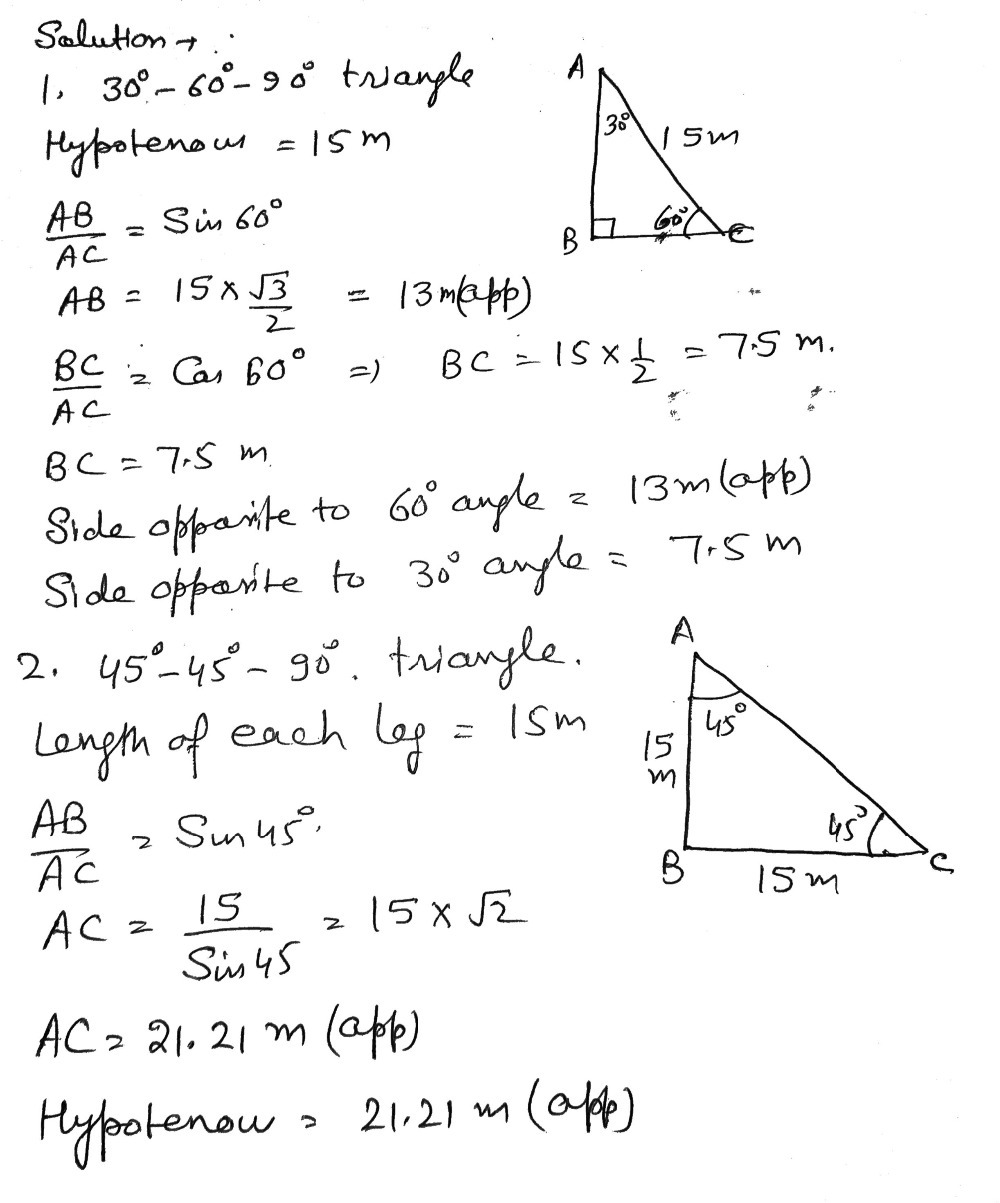 Solution → :
1. 30° - 60° - 90° triangle
Hypotenous = 15 m
AB/AC = Sin 60°
AB = 15 × √3/2 = 13 m(app)
BC/AC = Cos 60° => BC = 15 × 1/2 = 7.5 m.
BC = 7.5 m
Side opposite to 60° angle = 13m (app)
Side opposite to 30° angle = 7.5 m
A
30°
15m
B
60°
C
2. 45° - 45° - 90°. triangle.
Length of each leg = 15m
AB/AC = Sin 45°.
AC = 15/Sin 45 = 15 × √2
AC = 21.21 m (app)
Hypotenou = 21.21 m (app)
A
45°
15
m
45°
B
15 m
C